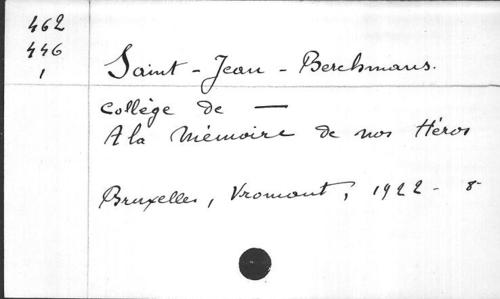 462
446
1
Saint-Jean-Berchmans.
Collège de —
A la Mémoire de nos Héros
Bruxelles, Vromant, 1922 - 8-